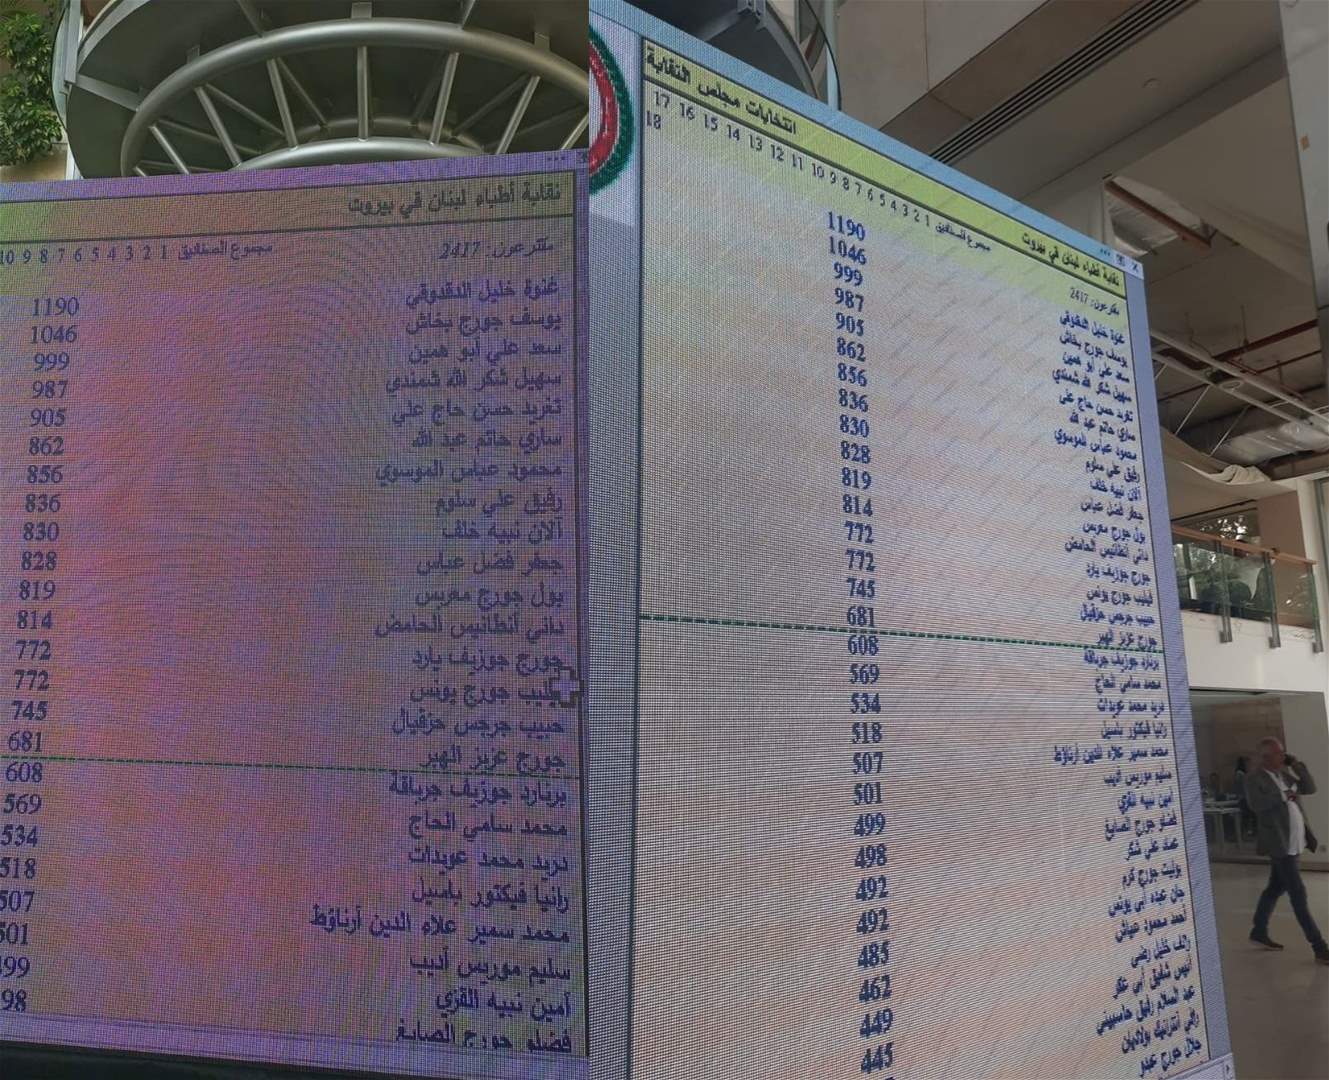 نقابة أطباء لبنان في بيروت
مقترعون: 2417
مجموع الصناديق 1 2 3 4 5 6 7 8 9 10
غنوة خليل الدقدوقي 1190
يوسف جورج بخاش 1046
سعد علي أبو همين 999
سهيل شكر الله شمندي 987
تغريد حسن حاج علي 905
ساري حاتم عبد الله 862
محمود عباس الموسوي 856
رفيق علي سلوم 836
آلان نبيه خلف 830
جعفر فضل عباس 828
بول جورج معربس 819
داني أنطانيس الحامض 814
جورج جوزيف يارد 772
فيليب جورج يونس 772
حبيب جرجس حزقيال 745
جورج عزيز الهبر 681
برنارد جوزيف جرباقة 608
محمد سامي الحاج 569
دريد محمد عويدات 534
رانيا فيكتور باسيل 518
محمد سمير علاء الدين أرناؤط 507
سليم موريس أديب 501
أمين نبيه القزي 499
فضلو جورج الصايغ 98
انتخابات مجلس النقابة
نقابة أطباء لبنان في بيروت
مقترعون: 2417
مجموع الصناديق 1 2 3 4 5 6 7 8 9 10 11 12 13 14 15 16 17
18
غنوة خليل الدقدوقي 1190
يوسف جورج بخاش 1046
سعد علي أبو همين 999
سهيل شكر الله شمندي 987
تغريد حسن حاج علي 905
ساري حاتم عبد الله 862
محمود عباس الموسوي 856
رفيق علي سلوم 836
آلان نبيه خلف 830
جعفر فضل عباس 828
بول جورج معربس 819
داني أنطانيس الحامض 814
جورج جوزيف يارد 772
فيليب جورج يونس 772
حبيب جرجس حزقيال 745
جورج عزيز الهبر 681
برنارد جوزيف جرباقة 608
محمد سامي الحاج 569
دريد محمد عويدات 534
رانيا فيكتور باسيل 518
محمد سمير علاء الدين أرناؤط 507
سليم موريس أديب 501
أمين نبيه القزي 499
فضلو جورج الصايغ 498
عماد علي شكر 492
جورج كرم 492
جان عبده أبي يونس 485
أحمد محمود عياش 462
رائف خليل رضى 449
أنيس شفيق أبي عكر 445
عبد السلام رفيق حاسبيني
رافي أنترانيك بولاديان
جلال جورج عبدو